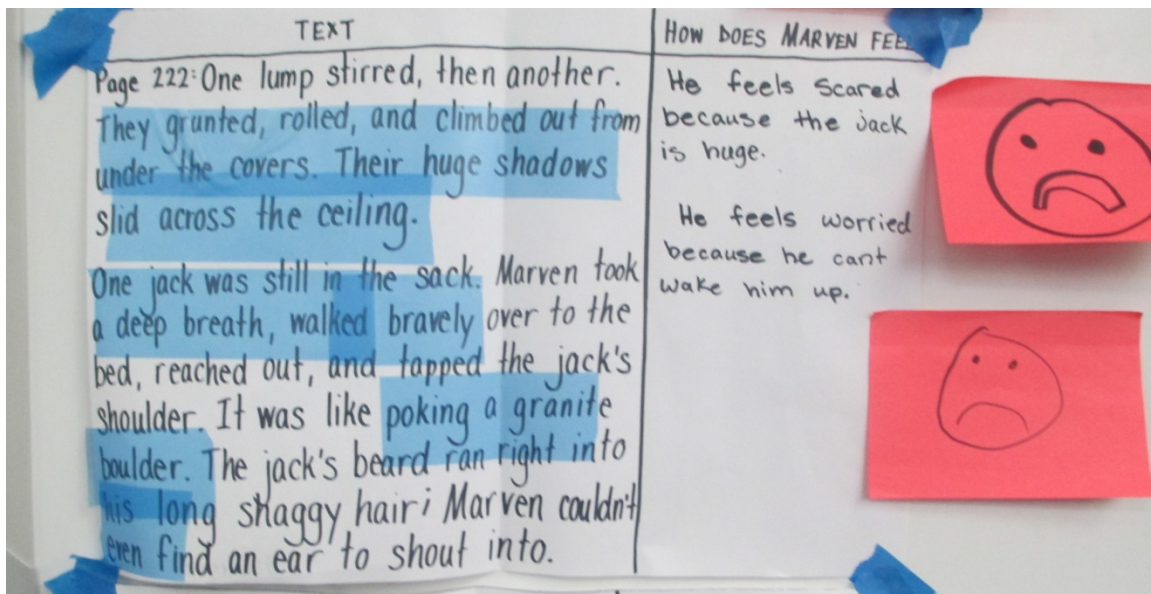 TEXT
Page 222: One lump stirred, then another.
They grunted, rolled, and climbed out from
under the covers. Their huge shadows
slid across the ceiling.
One jack was still in the sack. Marven took
a deep breath, walked bravely over to the
bed, reached out, and tapped the jack's
shoulder. It was like poking a granite
boulder. The jack's beard ran right into
his long shaggy hair; Marven couldn't
even find an ear to shout into.
HOW DOES MARVEN FEEL
He feels scared
because the jack
is huge.
He feels worried
because he cant
wake him up.